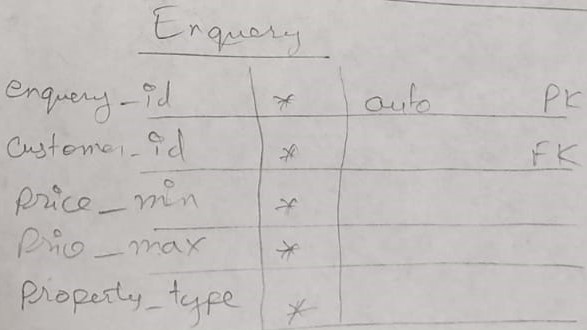 Enquery
enquery_id * auto PK
Customer_id * FK
Price_min *
Pric_max *
Property_type *